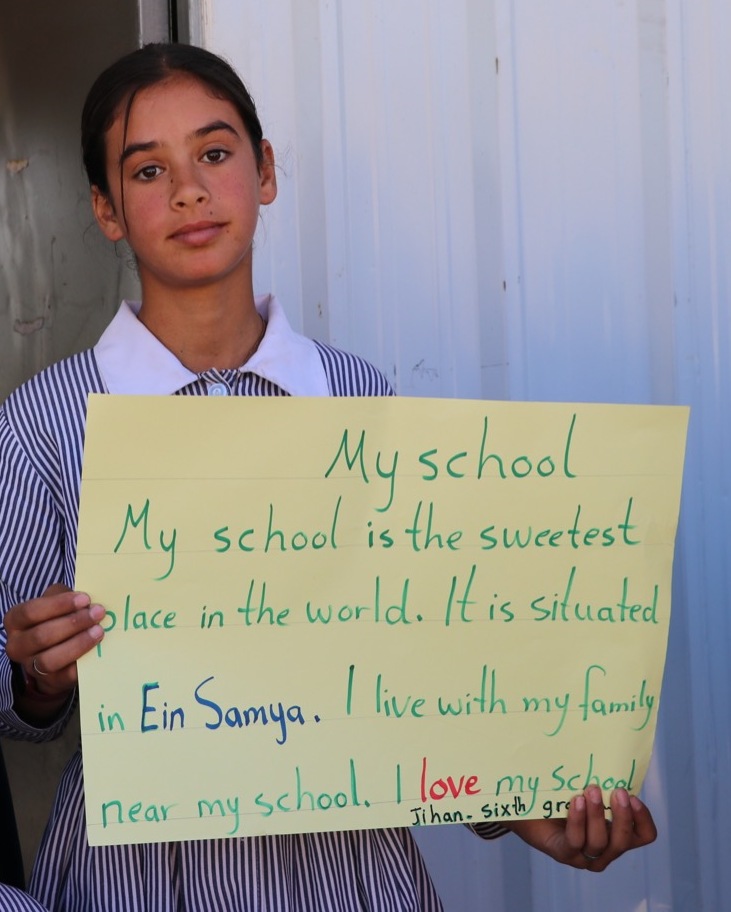 My school
My school is the sweetest
place in the world. It is situated
in Ein Samya. I live with my family
near my school. I love my school
Jihan - sixth